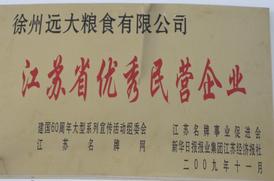 徐州远大粮食有限公司
江苏省优秀民营企业
建国60周年大型系列宣传活动组委会
江苏名牌网
江苏名牌事业促进会
新华日报报业集团江苏经济报社
二00九年十一月